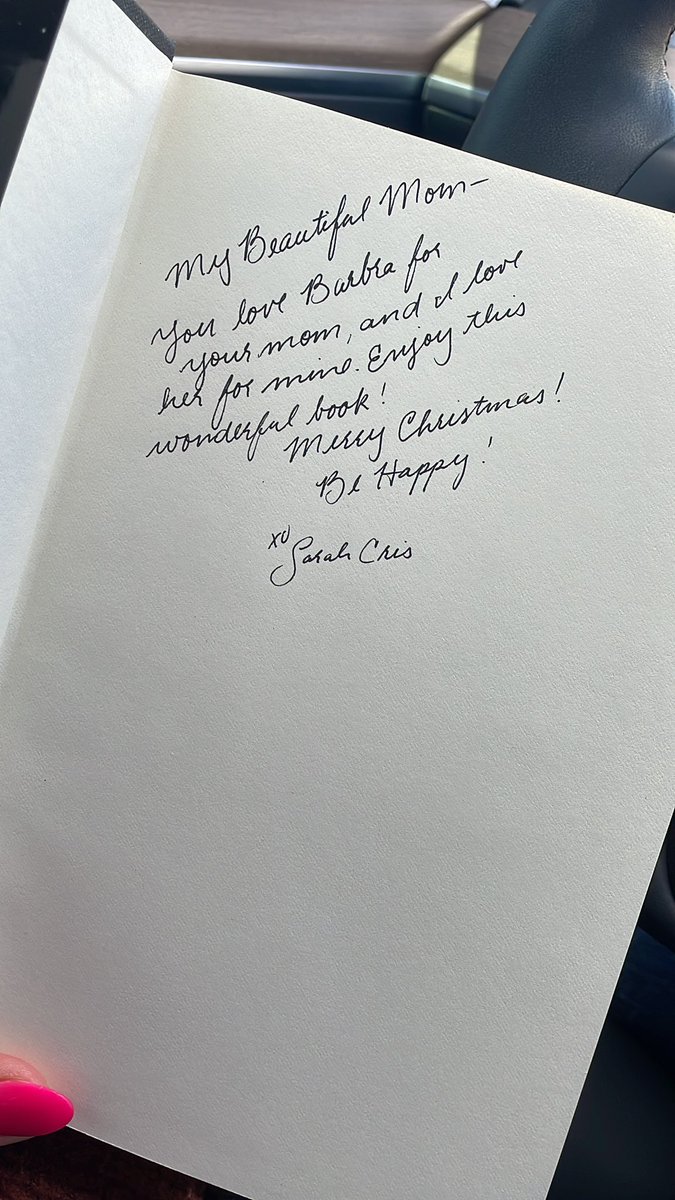 My Beautiful Mom-
You love Barbra for
your mom, and I love
her for mine. Enjoy this
wonderful book!
Merry Christmas!
Be Happy!
xo
Sarah Cris